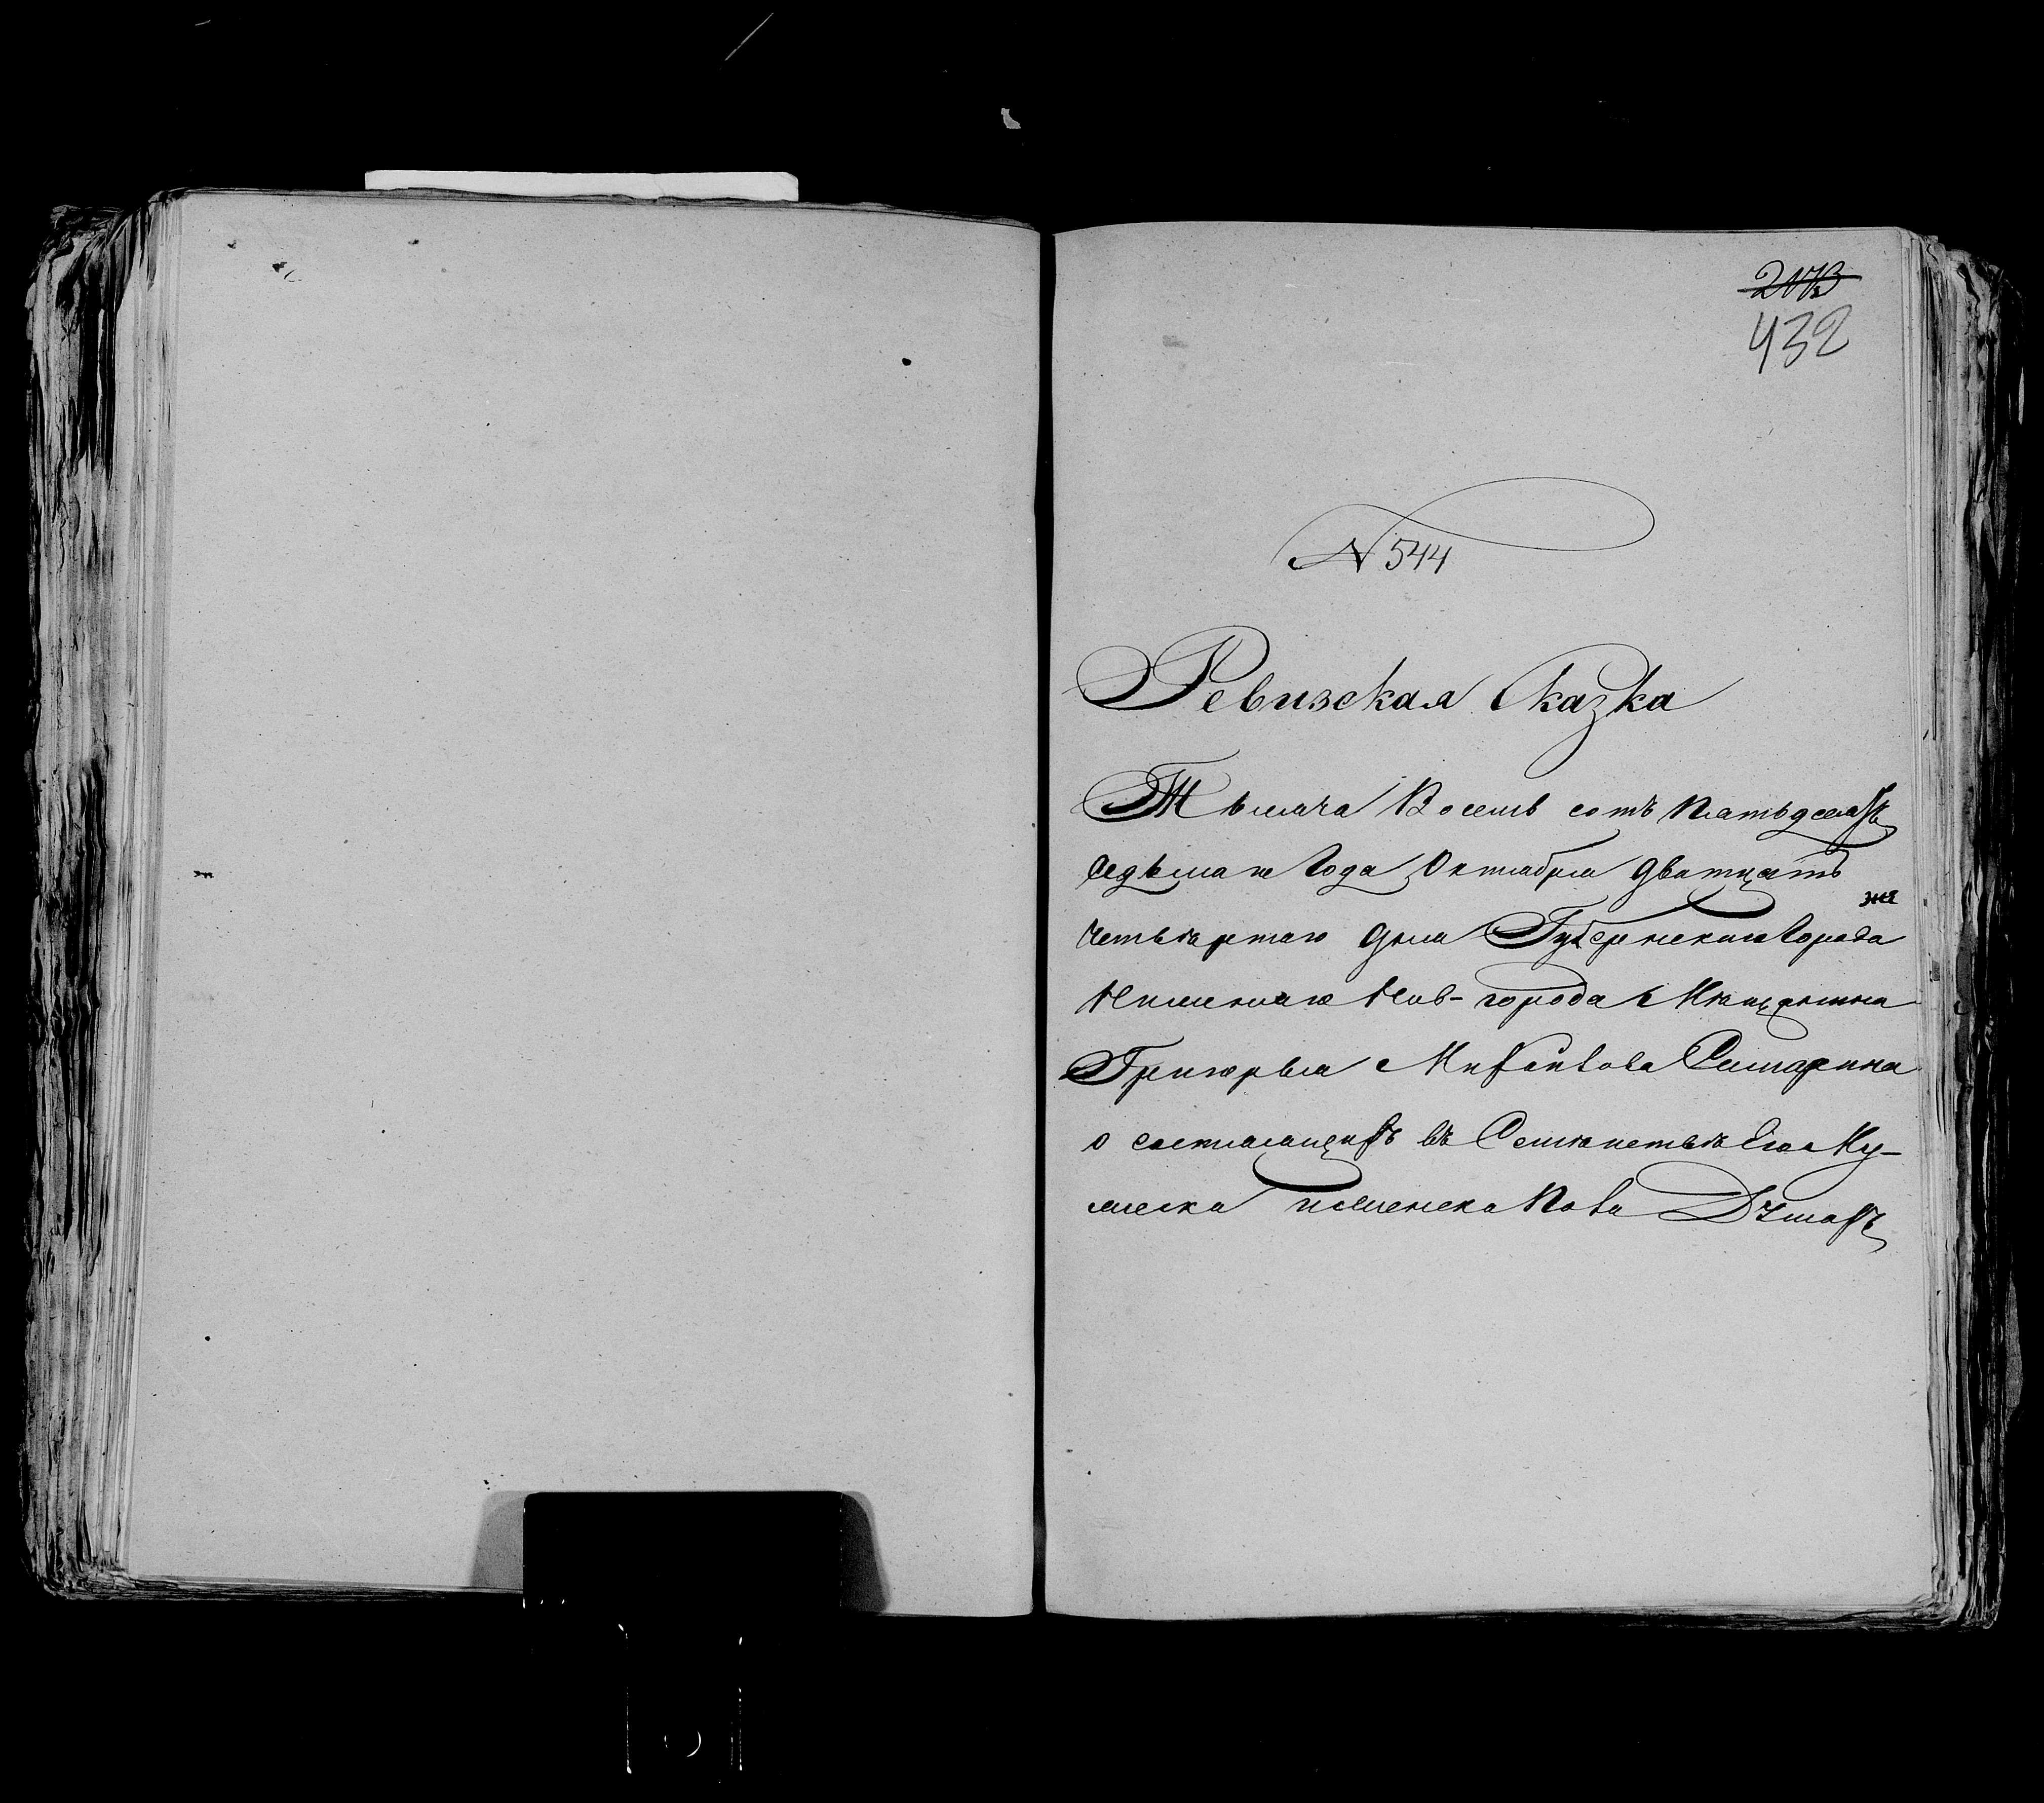 2173
432
N 544
Ревизская Сказка
Тысяча Восемь сотъ Пятьдесятъ
седьмаго Года Октября дватцать
четвертаго дня Губернскаго Города
Нижняго Нов-города Мѣщанина
Григорья Михайлова Самарина
о состоящихъ въ Семѣйствѣ его Му-
жеска и женска Пола Душахъ